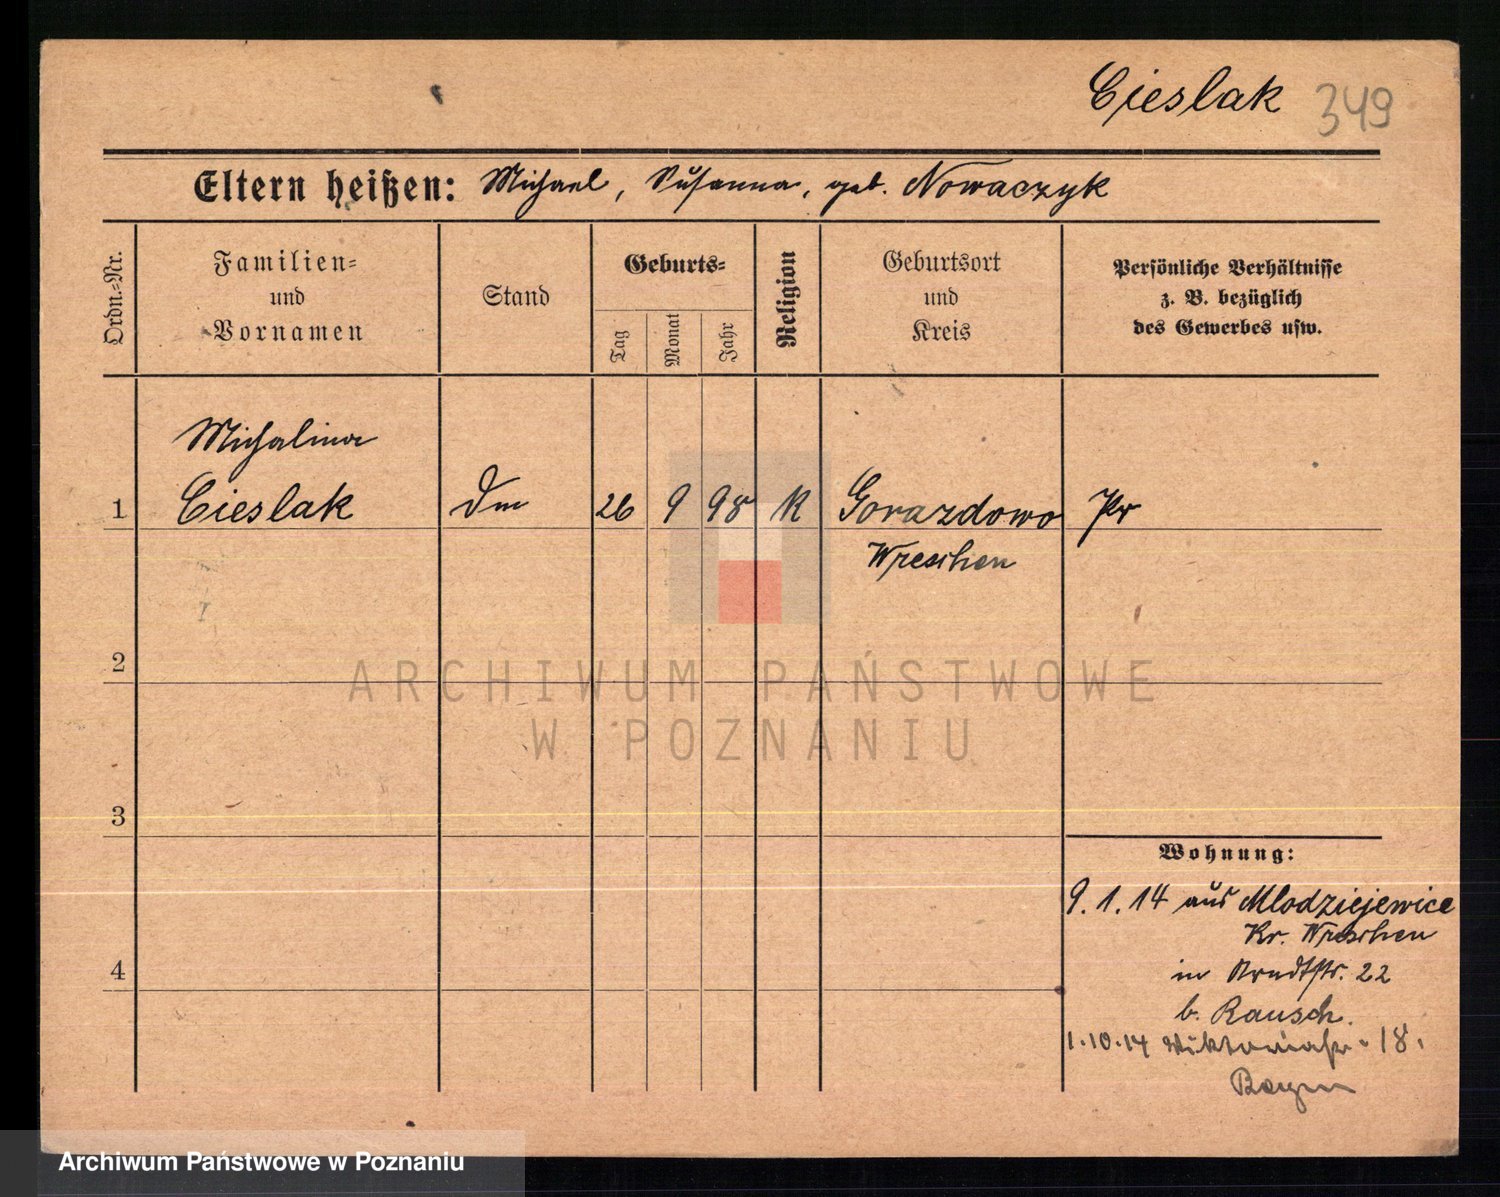 Cieslak 349
Eltern heißen: Michael, Susanna, geb. Nowaczyk
Ordn.-Nr.
Familien-
und
Vornamen
Stand
Geburts-
Tag
Monat
Jahr
Religion
Geburtsort
und
Kreis
Persönliche Verhältnisse
z. B. bezüglich
des Gewerbes usw.
Michalina
1 Cieslak Dm 26 9 98 K Gorazdowo Pr
Wreschen
2
ARCHIWUM PAŃSTWOWE
W POZNANIU
3
Wohnung:
9.1.14 aus Mlodziejewice
Kr. Wreschen
4
in Arndtstr. 22
b. Rausch.
1.10.14 Viktoriastr. 18.
Archiwum Państwowe w Poznaniu